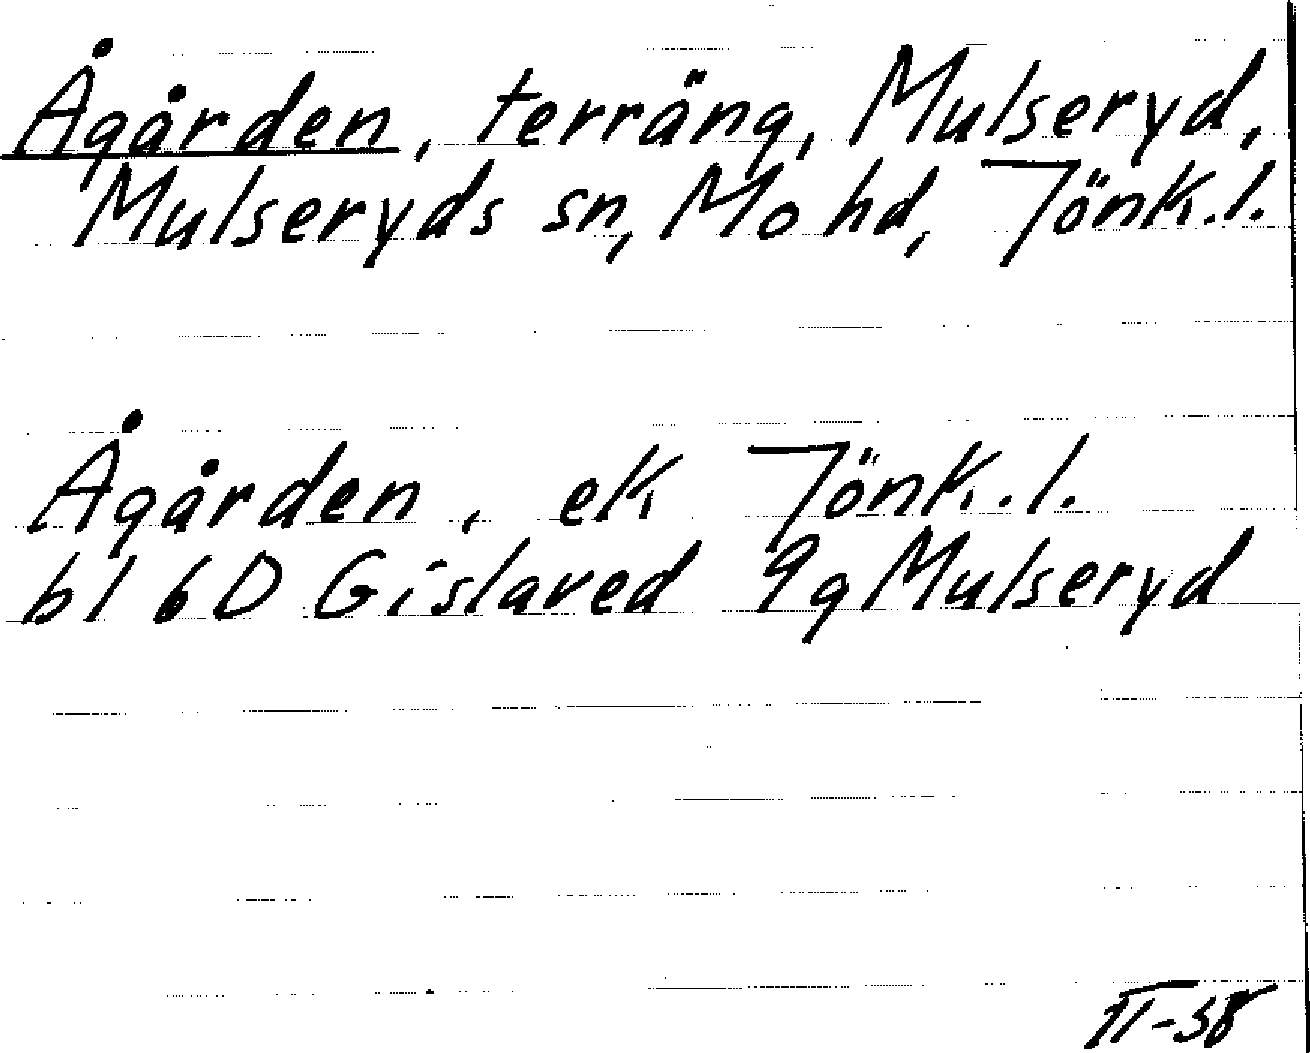 Ågården, terräng, Mulseryd,
Mulseryds sn, Mo hd, Jönk.l.
Ågården, ek Jönk.l.
bl 6D Gislaved 9g Mulseryd
II-58